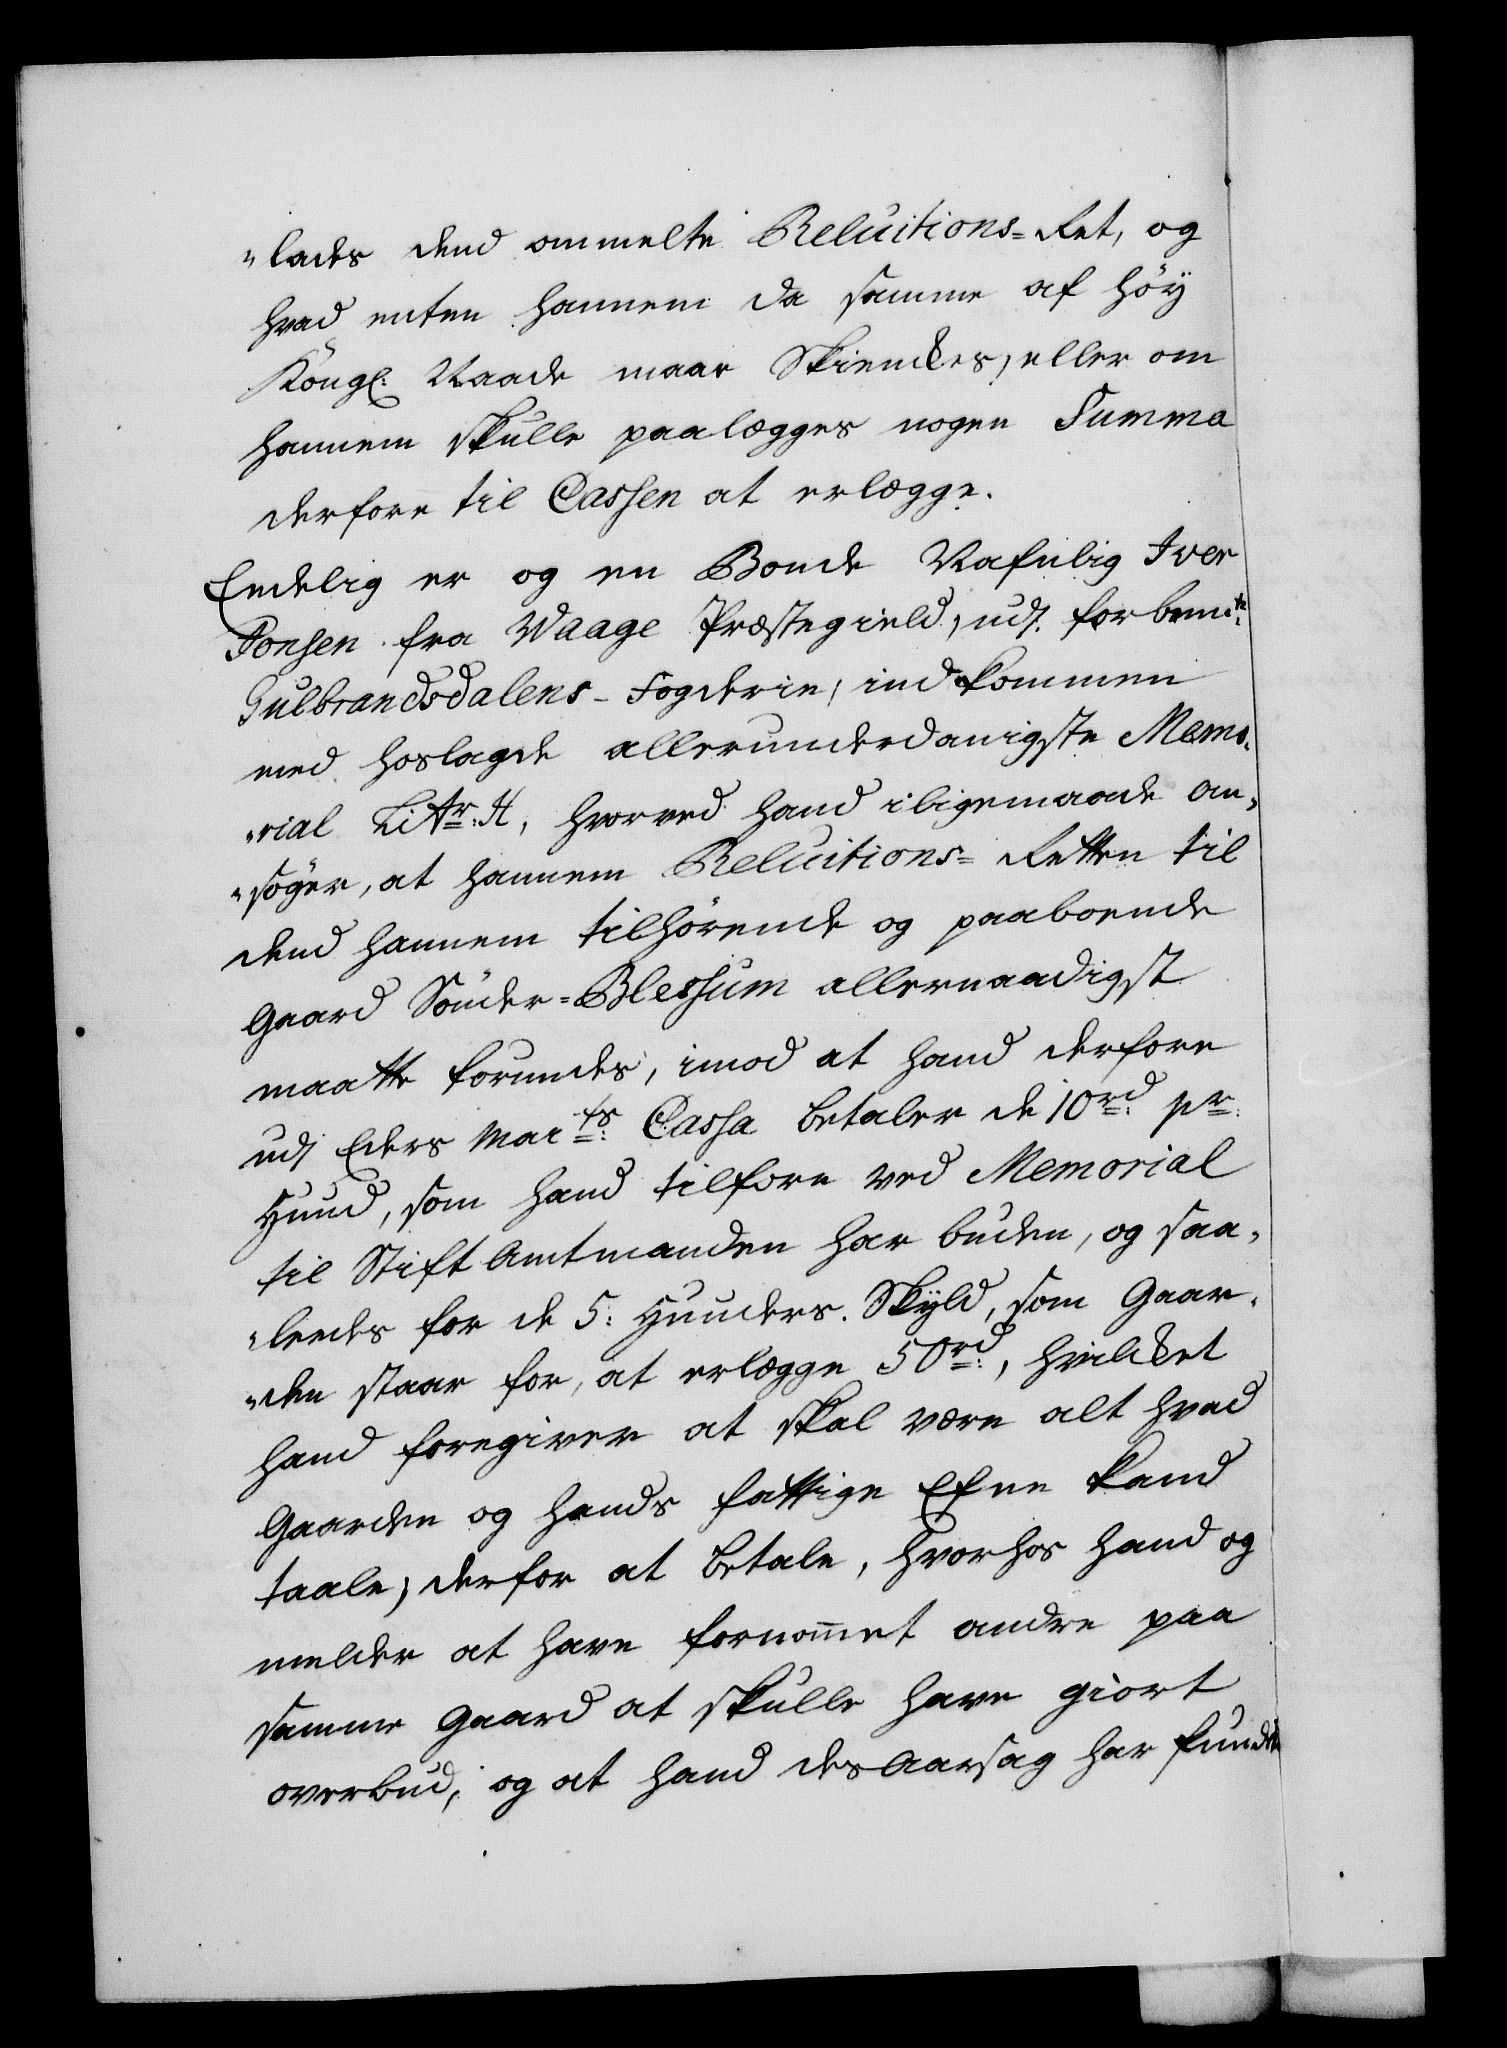 „lades dend ommelte Reluitions=Ret, og
hvad enten hannem da samme af höÿ
Kongl: Naade maae Skienckes, eller om
hannem skulle paalægges nogen Summa
derfore til Cassen at erlægge.
Endelig er og en Bonde Nafnlig Iver
Jonsen fra Waage Præstegield, udj forbem.te
Gulbrandsdalens-Fogderie, indkommen
med hoslagde allerunderdanigste Memo„
„rial Litr: H, hvorved hand iligemaade an„
„söger, at hannem Reluitions=Retten til
dend hannem tilhörende og paaboende
Gaard Sönder=Blessum allernaadigst
maatte forundes, imod at hand derfore
udj Eders Maits: Cassa betaler de 10rd: pr:
Huud, som hand tilforn ved Memorial
til StiftAmtmanden har buden, og saa„
„leedes for de 5: Huuders Skÿld, som Gaar„
„den staar for, at erlægge 50rd:, hvilcket
hand foregiver at skal være alt hvad
Gaarden og hands fattige Efne kand
taale, derfor at betale, hvorhos hand og
melder at have fornom̄et andre paa
samme Gaard at skulle have giort
overbud, og at hand desaarsag har funden